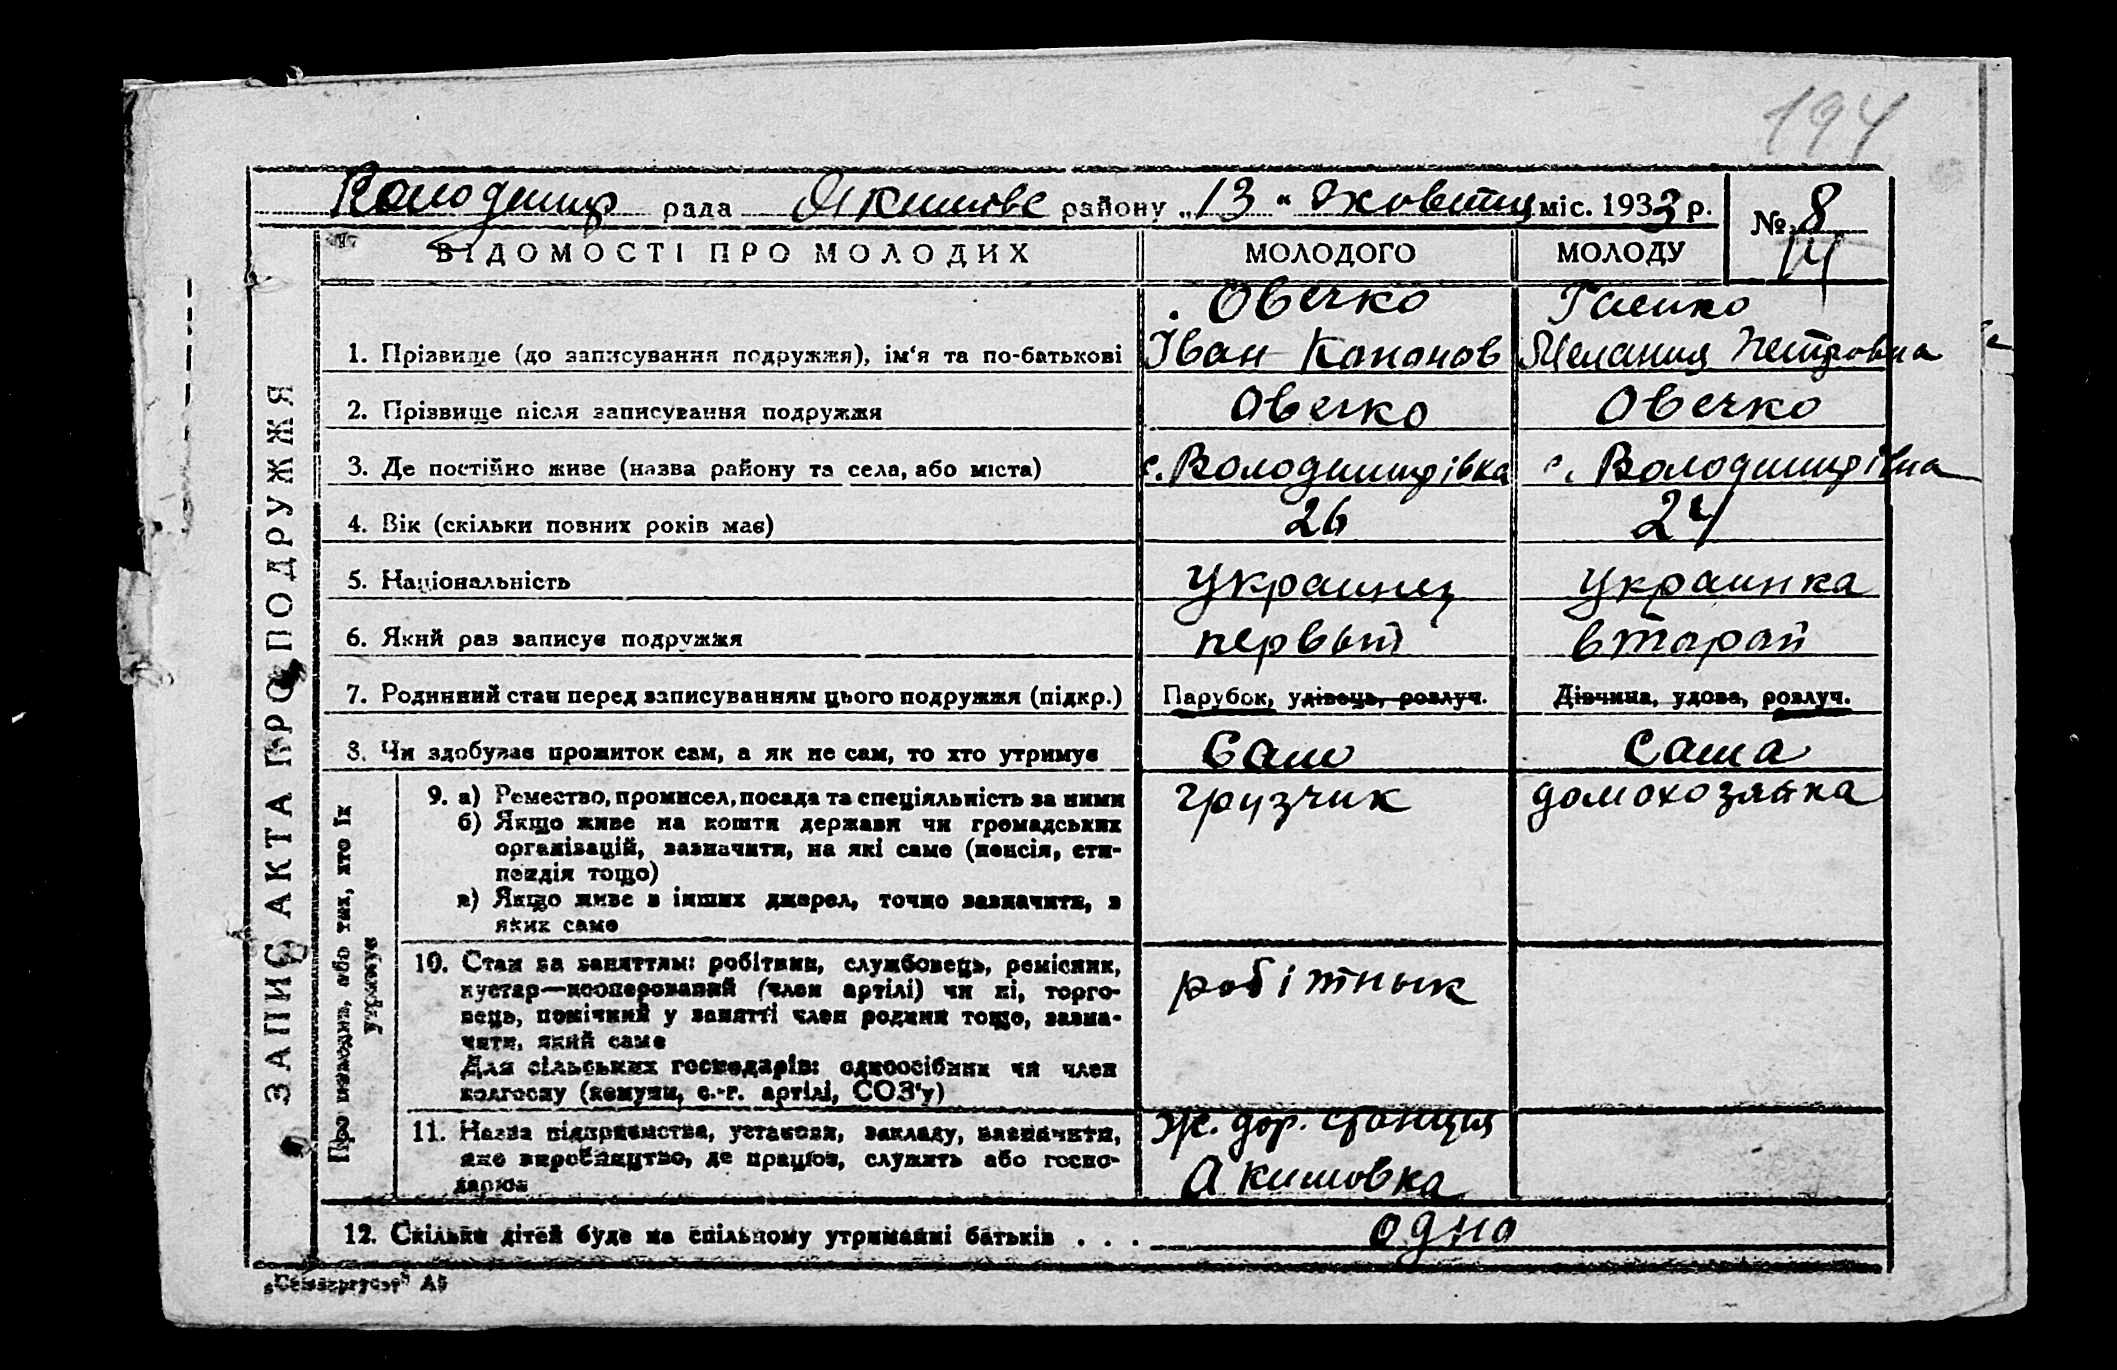 194
Володимир рада Якимове району „13“ Жовтня міс. 1933 р. № 8
14
ВІДОМОСТІ ПРО МОЛОДИХ МОЛОДОГО МОЛОДУ
ЗАПИС АКТА ПРО ПОДРУЖЖЯ
Овечко
Іван Кононов
Мелания Петровна
1. Прізвище (до записування подружжя), ім'я та по-батькові
2. Прізвище після записування подружжя Овечко Овечко
3. Де постійно живе (назва району та села, або міста) с. Володимирівка с. Володимирівка
4. Вік (скільки повних років має) 26 24
5. Національність украинец украинка
6. Який раз записує подружжя первый второй
7. Родинний стан перед записуванням цього подружжя (підкр.) Парубок, удівець, розлуч. Дівчина, удова, розлуч.
8. Чи здобуває прожиток сам, а як не сам, то хто утримує Сам Сама
Про молодих, або тих, хто їх
утримує
9. а) Ремество, промисел, посада та спеціяльність за ними грузчик домохозяйка
б) Якщо живе на кошти держави чи громадських
організацій, зазначити, на які саме (пенсія, сти-
пендія тощо)
в) Якщо живе з інших джерел, точно зазначити, з
яких саме
10. Стан за заняттям: робітник, службовець, ремісник, робітнык
кустар—кооперований (член артілі) чи ні, торго-
вець, помічний у занятті член родини тощо, зазна-
чити, який саме
Для сільських господарів: одноосібник чи член
колгоспу (комуни, с.-г. артілі, СОЗ'у)
11. Назва підприємства, установи, закладу, зазначити, Ж. дор. станция
яке виробництво, де працює, служить або госпо- Акимовка
дарює
12. Скільки дітей буде на спільному утриманні батьків . . . одно